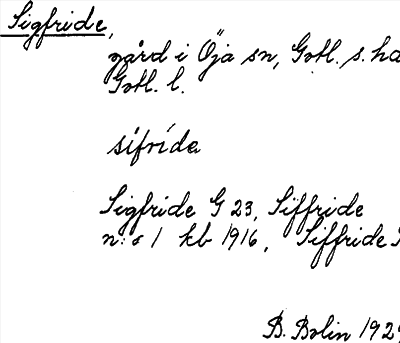 Sigfride,
gård i Öja sn, Gotl. s. hd
Gotl. l.
sífrída
Sigfride G 23, Siffride
n:o 1 kb 1916, Siffride
B. Bolin 1929